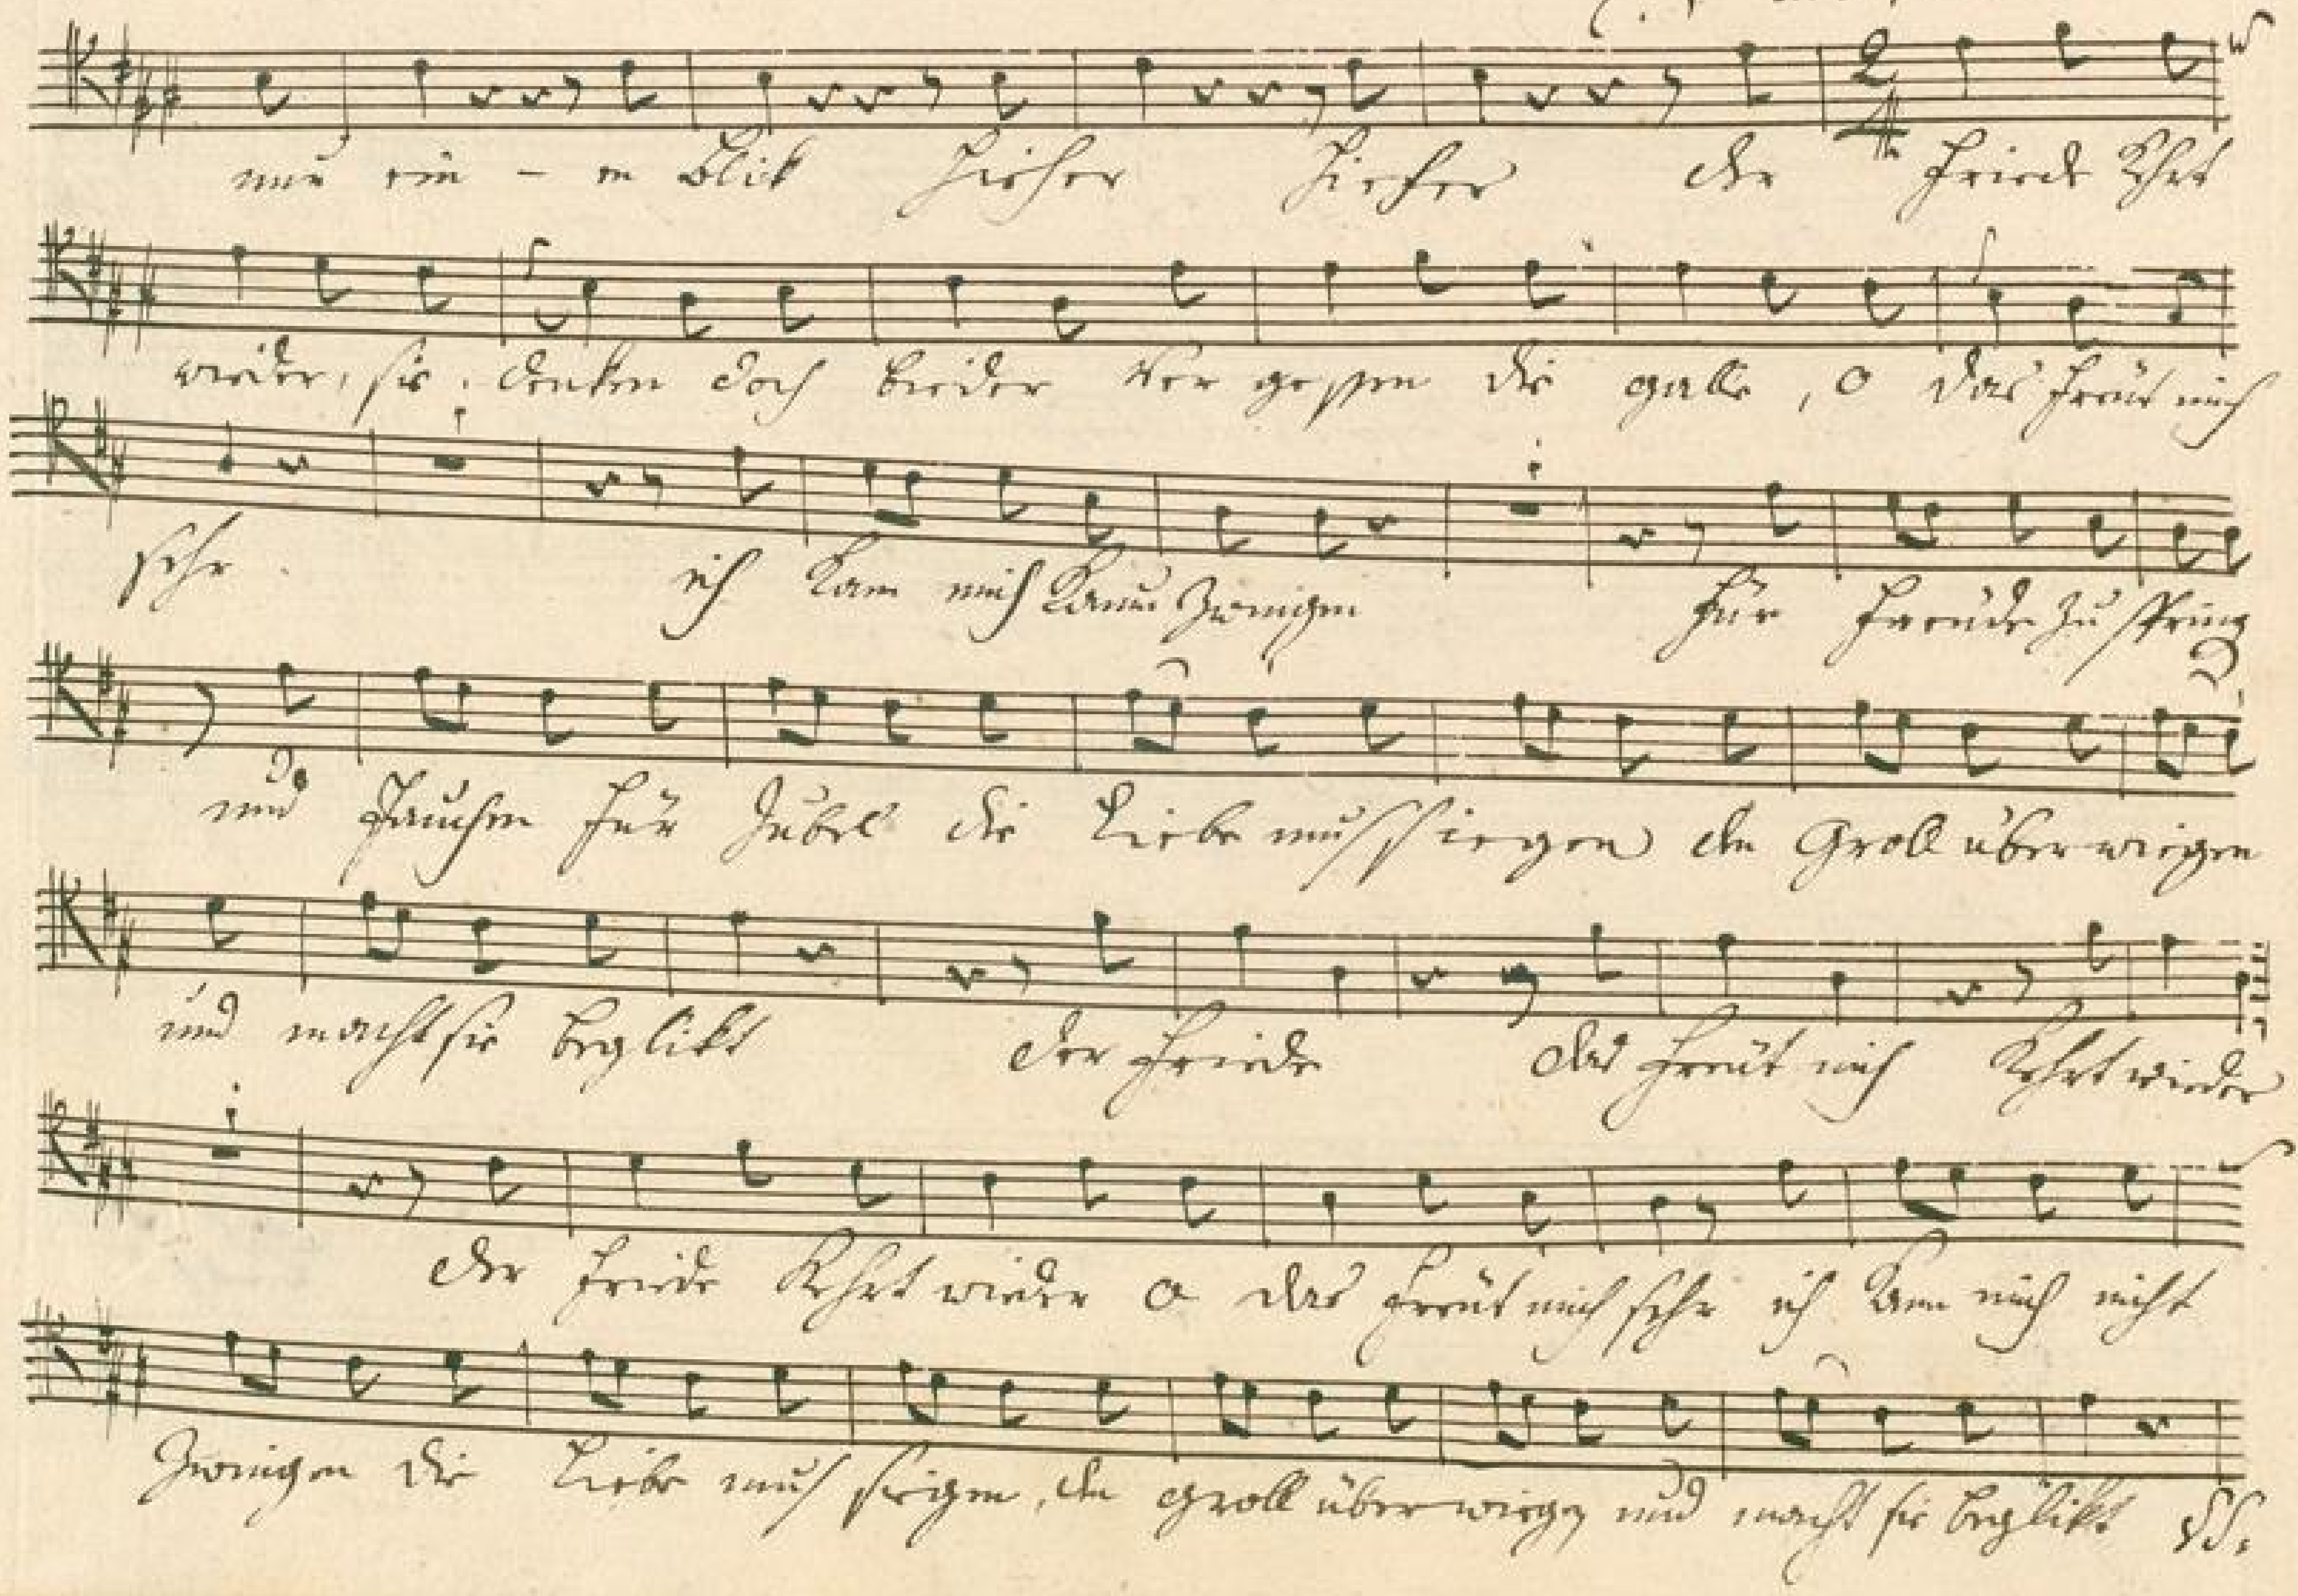 nur ein - en Blik hieher hieher der Friede Kehrt
wieder, sie denken doch beider Ver gessen die galle, o das freut mich
sehr ich kann mich kaum zwingen für Freude zu spring
und Jauchzen für Jubel die Liebe muss siegen den Groll überwiegen
und macht sie beglikt der Friede das freut mich Kehrt wieder
der Friede Kehrt wieder o das freut mich sehr ich kann mich nicht
zwingen die Liebe mus siegen, den groll überwieg und macht sie beglikt